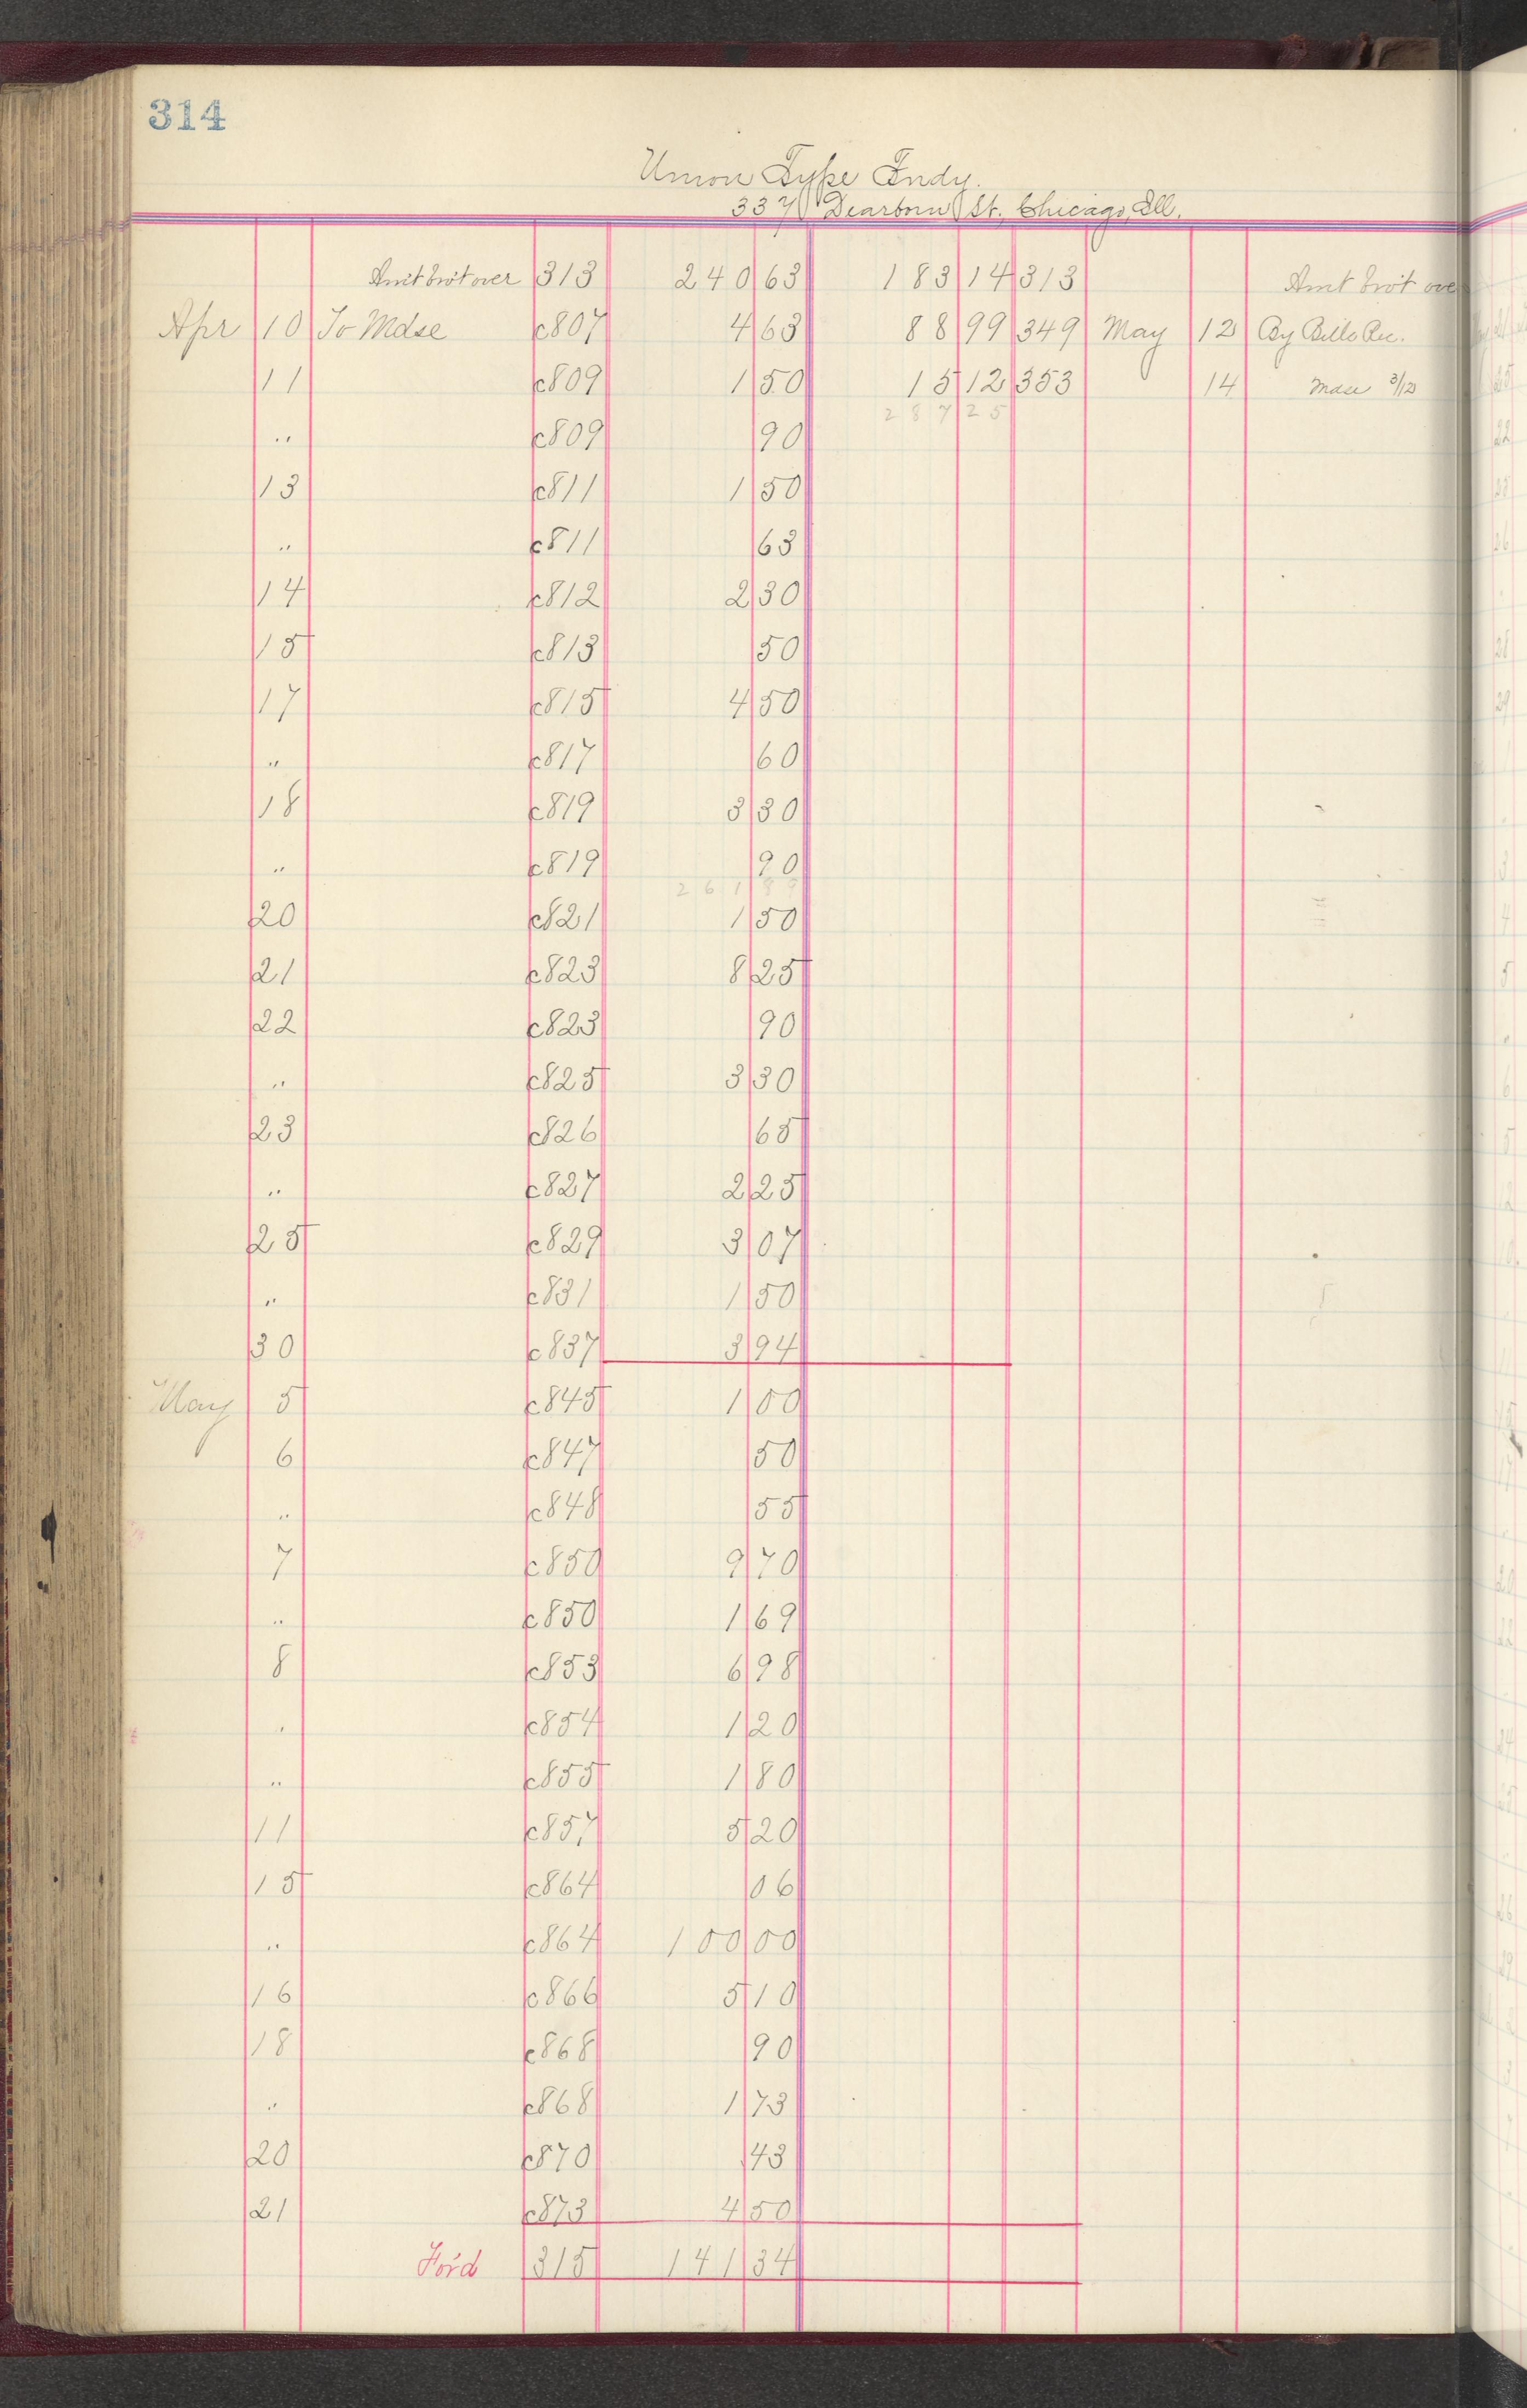 314
Union Type Fndy.
337 Dearborn St. Chicago, Ill.
Am't bro't over 313 240 63 183 14 313 Amt bro't ove
Apr 10 To Mdse c807 4 63 88 99 349 May 12 By Bills Rec.
11 c809 1 50 15 12 353 14 Mdse 3/12
287 25
" c809 90
13 c811 1 50
" c811 63
14 c812 2 30
15 c813 50
17 c815 4 50
" c817 60
18 c819 3 30
" c819 90
261 89
20 c821 1 50
21 c823 8 25
22 c823 90
" c825 3 30
23 c826 65
" c827 2 25
25 c829 3 07
" c831 1 50
30 c837 3 94
May 5 c845 1 00
6 c847 50
" c848 55
7 c850 9 70
" c850 1 69
8 c853 6 98
" c854 1 20
" c855 1 80
11 c857 5 20
15 c864 06
" c864 100 00
16 c866 5 10
18 c868 90
" c868 1 73
20 c870 43
21 c873 4 50
For'd 315 141 34